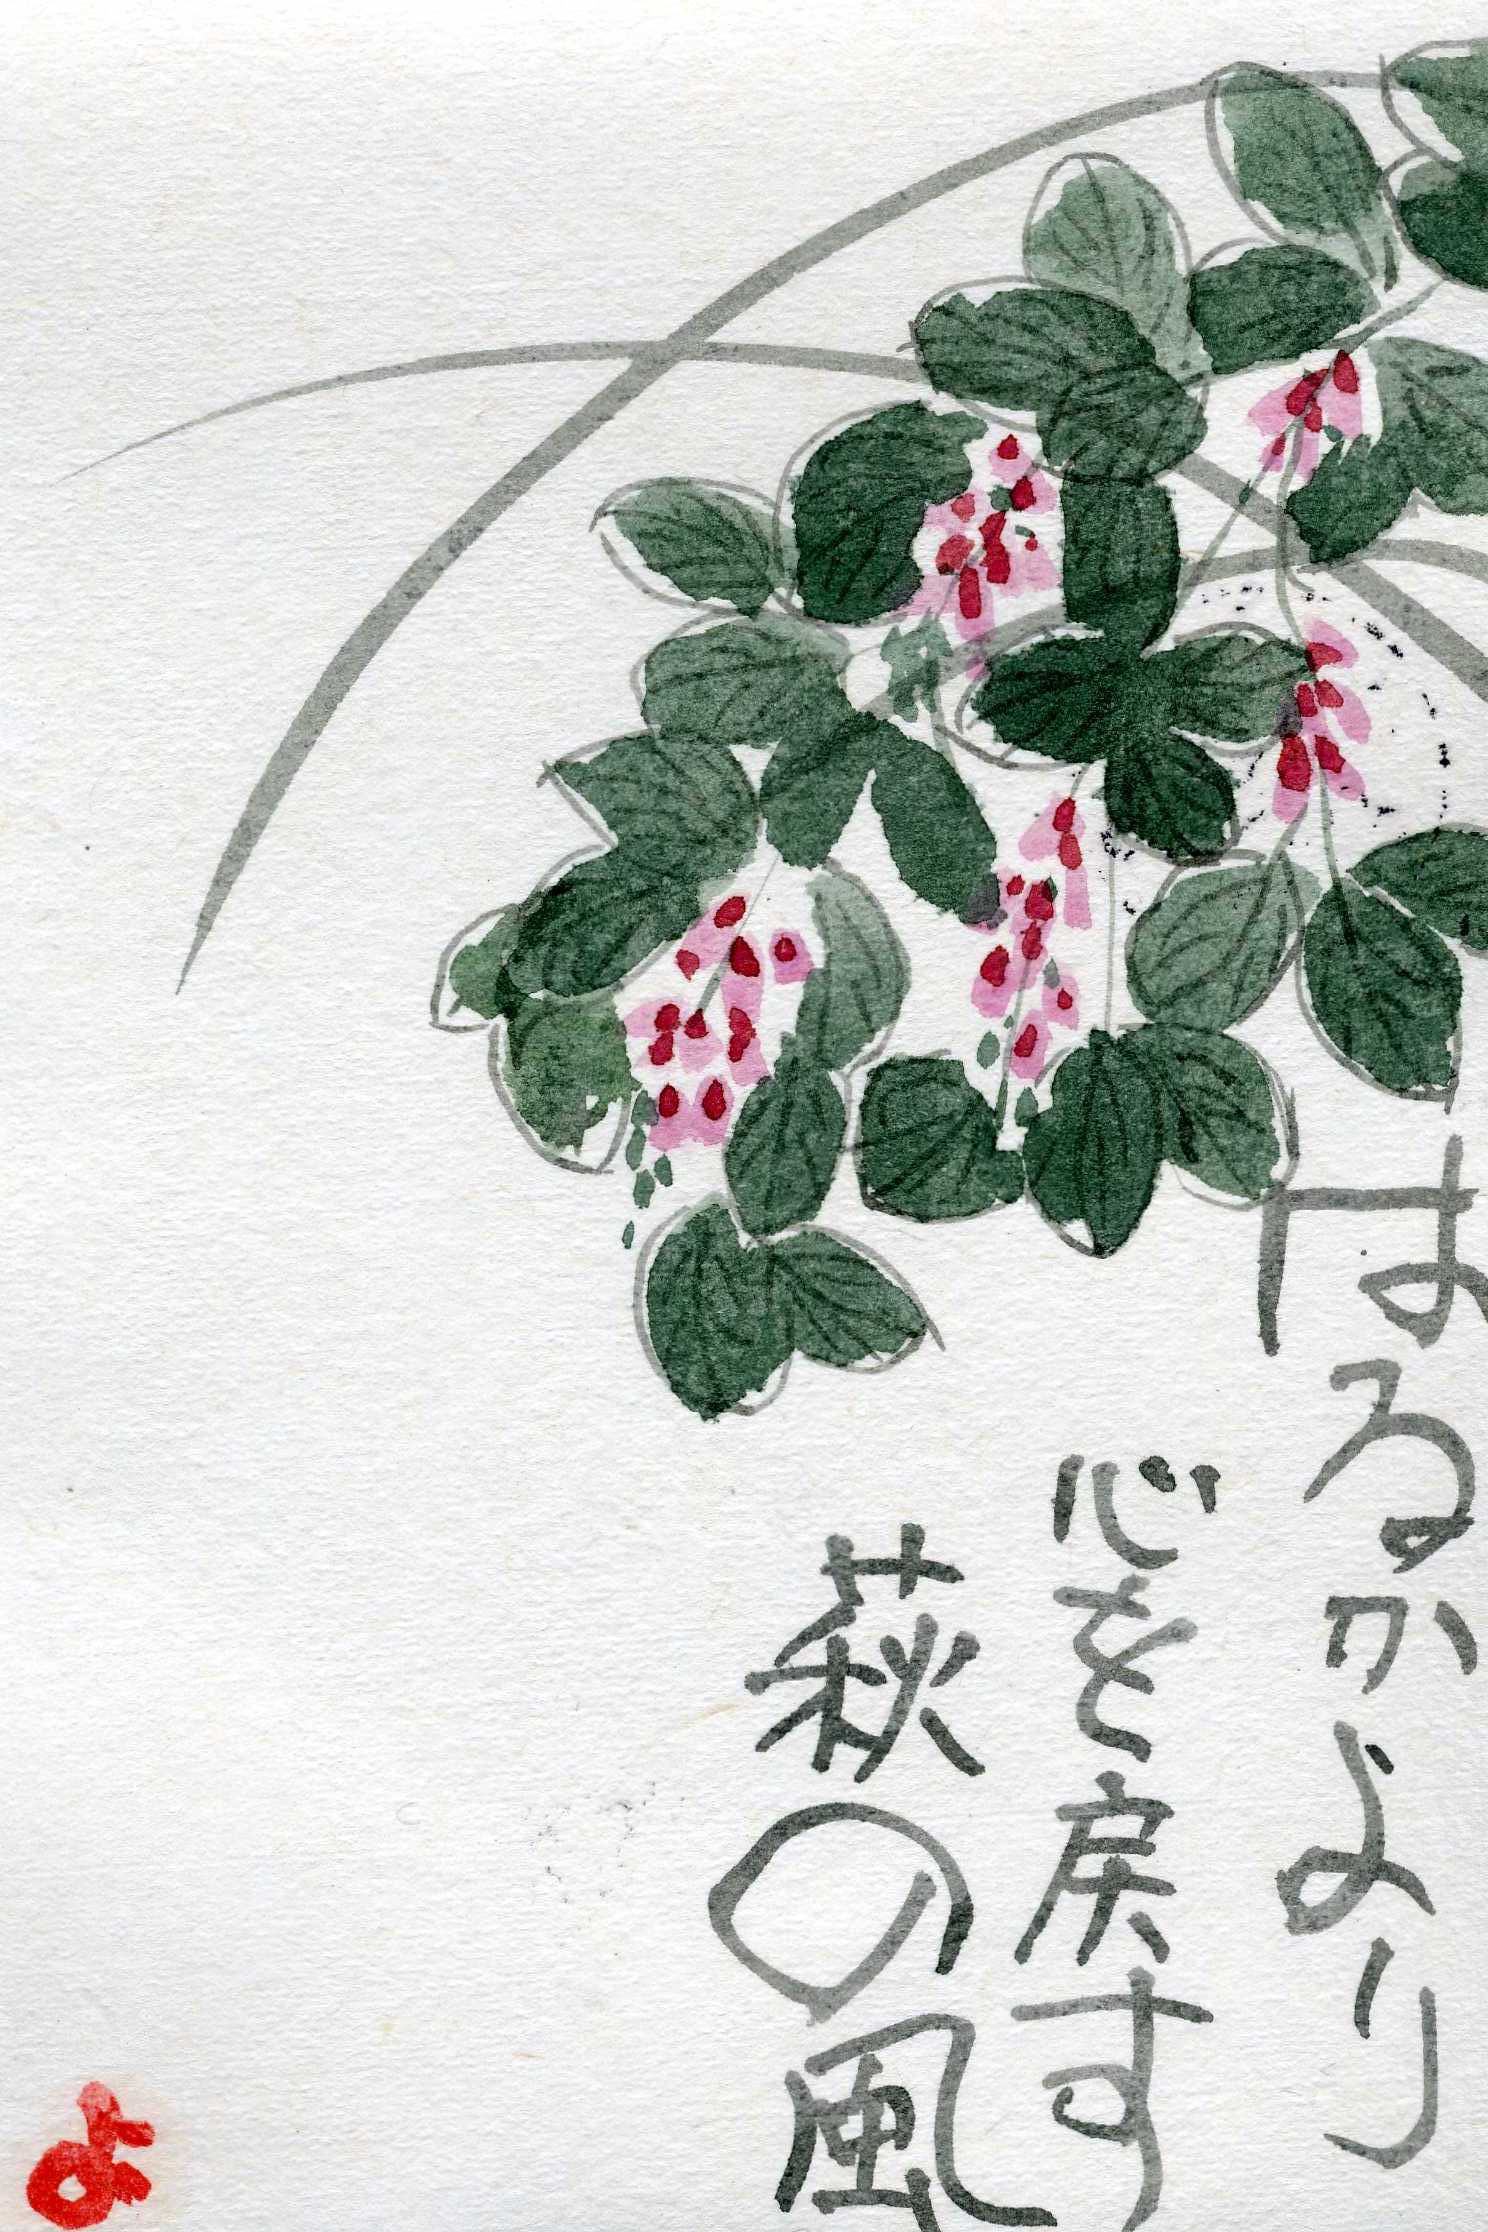 はるかより
心を戻す
萩の風
よ